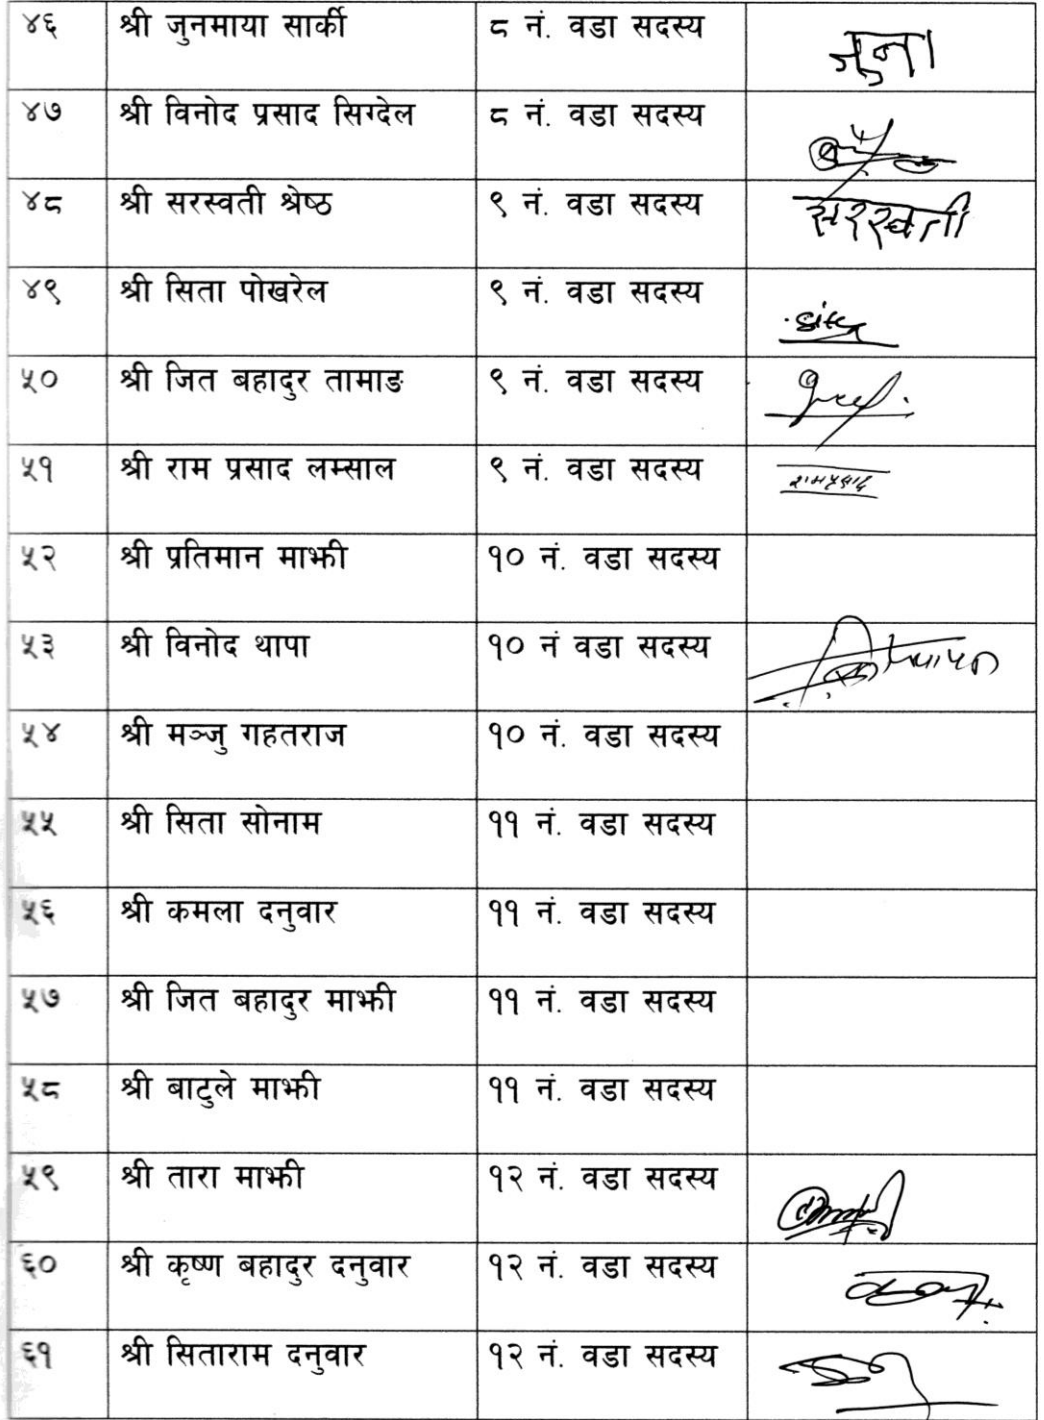 ४६ श्री जुनमाया सार्की ८ नं. वडा सदस्य जुना
४७ श्री विनोद प्रसाद सिग्देल ८ नं. वडा सदस्य
४८ श्री सरस्वती श्रेष्ठ ९ नं. वडा सदस्य सरस्वती
४९ श्री सिता पोखरेल ९ नं. वडा सदस्य Sita
५० श्री जित बहादुर तामाङ ९ नं. वडा सदस्य
५१ श्री राम प्रसाद लम्साल ९ नं. वडा सदस्य रामप्रसाद
५२ श्री प्रतिमान माझी १० नं. वडा सदस्य
५३ श्री विनोद थापा १० नं वडा सदस्य
५४ श्री मञ्जु गहतराज १० नं. वडा सदस्य
५५ श्री सिता सोनाम ११ नं. वडा सदस्य
५६ श्री कमला दनुवार ११ नं. वडा सदस्य
५७ श्री जित बहादुर माझी ११ नं. वडा सदस्य
५८ श्री बाटुले माझी ११ नं. वडा सदस्य
५९ श्री तारा माझी १२ नं. वडा सदस्य
६० श्री कृष्ण बहादुर दनुवार १२ नं. वडा सदस्य
६१ श्री सिताराम दनुवार १२ नं. वडा सदस्य